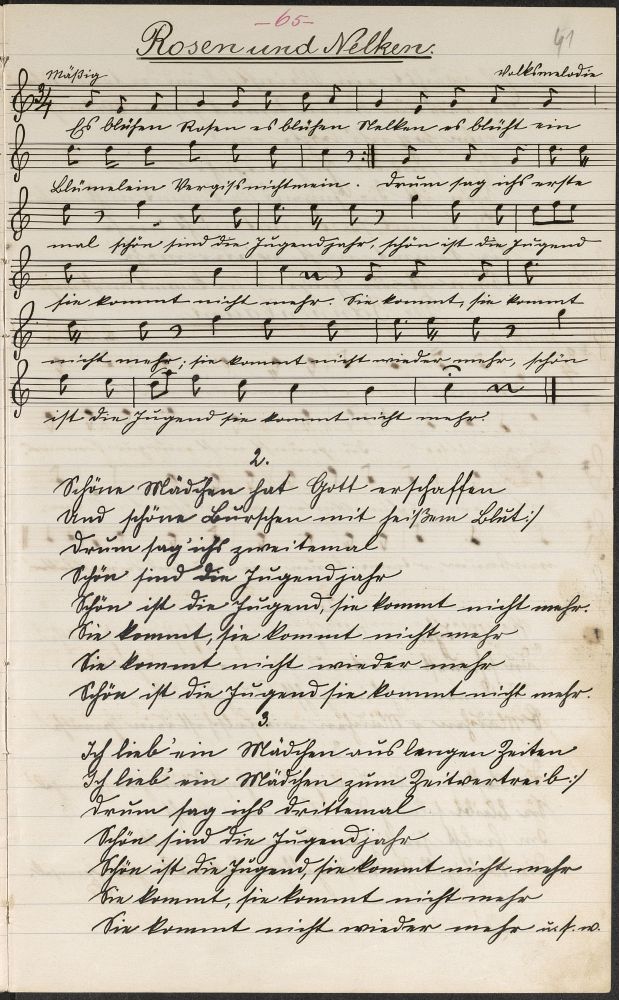 -65-
41
Rosen und Nelken.
Mäßig
Volksmelodie
3/4
Es blühen Rosen es blühen Nelken es blüht ein
Blümelein Vergissnichtmein. Drum sag ichs erste
mal schön sind die Jugendjahr, schön ist die Jugend
sie kommt nicht mehr. Sie kommt, sie kommt
nicht mehr; sie kommt nicht wieder mehr, schön
ist die Jugend sie kommt nicht mehr.
2.
Schöne Mädchen hat Gott erschaffen
Und schöne Burschen mit heißem Blut:/
Drum sag' ichs zweitemal
Schön sind die Jugendjahr
Schön ist die Jugend, sie kommt nicht mehr.
Sie kommt, sie kommt nicht mehr
Sie kommt nicht wieder mehr
Schön ist die Jugend sie kommt nicht mehr.
3.
Ich lieb' ein Mädchen aus langen Zeiten
Ich lieb' ein Mädchen zum Zeitvertreib:/
Drum sag ichs drittemal
Schön sind die Jugendjahr
Schön ist die Jugend, sie kommt nicht mehr
Sie kommt, sie kommt nicht mehr
Sie kommt nicht wieder mehr u.s.w.